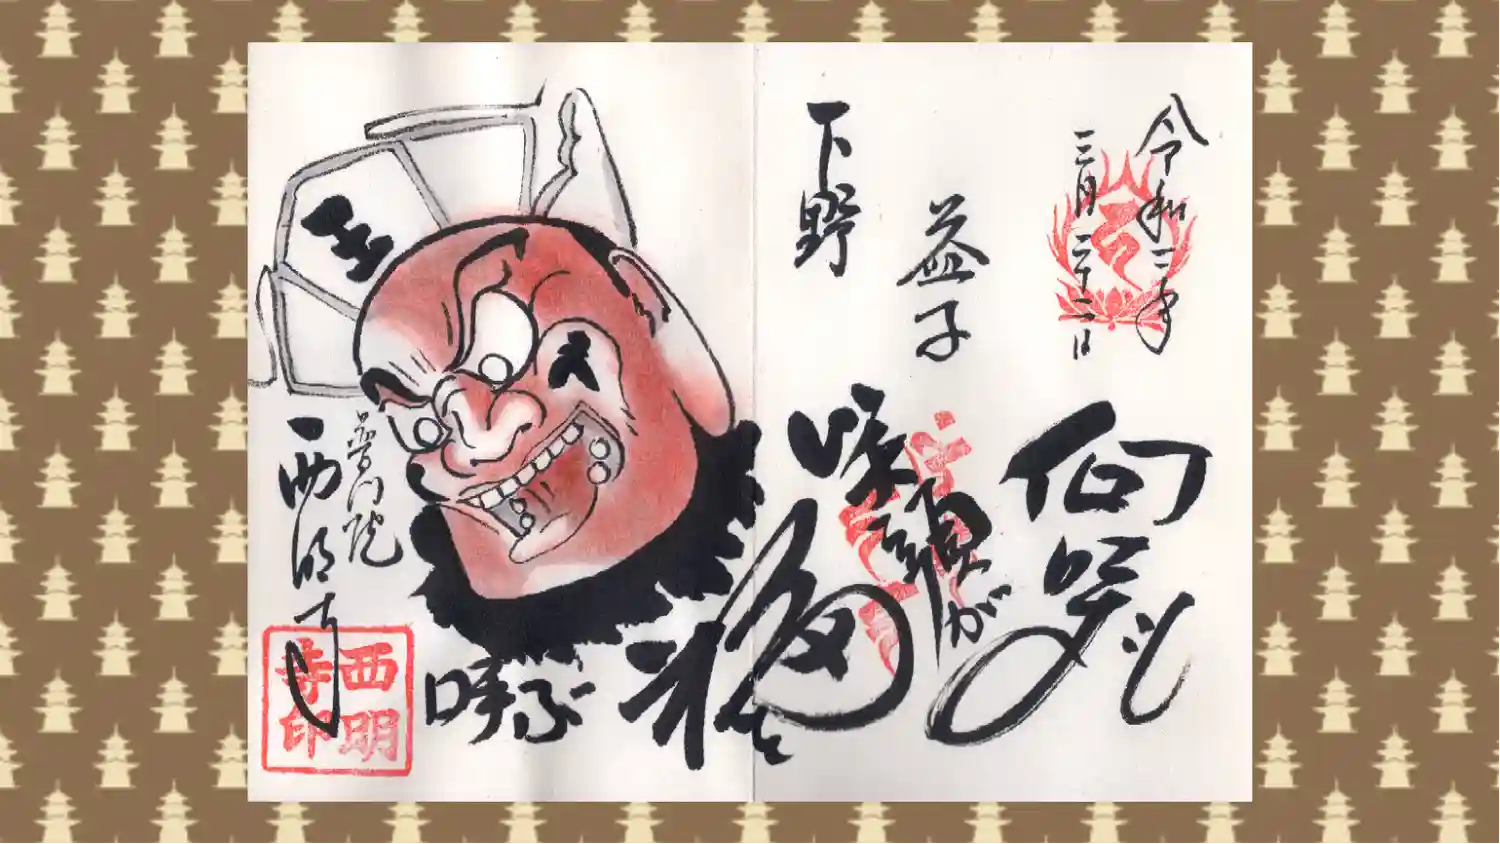 令和二年
三月二十二日
下野
益子
何時も
咲顔が
福を
呼ぶ
王
普門院
西明寺
西明
寺印